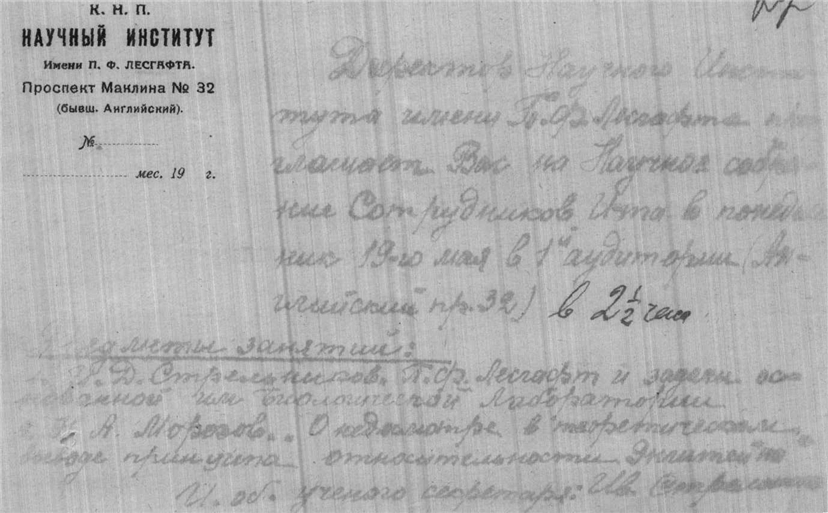 К. Н. П.
НАУЧНЫЙ ИНСТИТУТ
Имени П. Ф. ЛЕСГАФТА.
Проспект Маклина № 32
(бывш. Английский).
№
мес. 19 г.
Научного Инсти
тута имени П. Ф. Лесгафта при
глашает Вас на Научное собра
ние Сотрудников И-та в понедель
ник 19-го мая в 1й аудитории (Ан-
глийский пр. 32) в 2 1/2 час
занятий:
Д. Стрельников. П. Ф. Лесгафт и задачи ос
нованной им Биологической Лаборатории
2. Н. А. Морозов. О недосмотре в теоретическом
выводе принципа относительности Энштейна
И. об. ученого секретаря: Ив. Стрельников